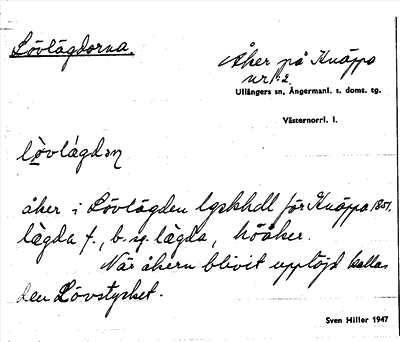 Lövlägdorna.
Åker på Knäppa
nr 2.
Ullångers sn, Ångermanl. s. doms. tg.
Västernorrl. l.
åker i Lövlägden lgskhdl för Knäppa 1801.
lägda f., b. sg. lägda, höåker.
När åkern blivit upplöjd kallas
den Lövstycket.
Sven Hiller 1947